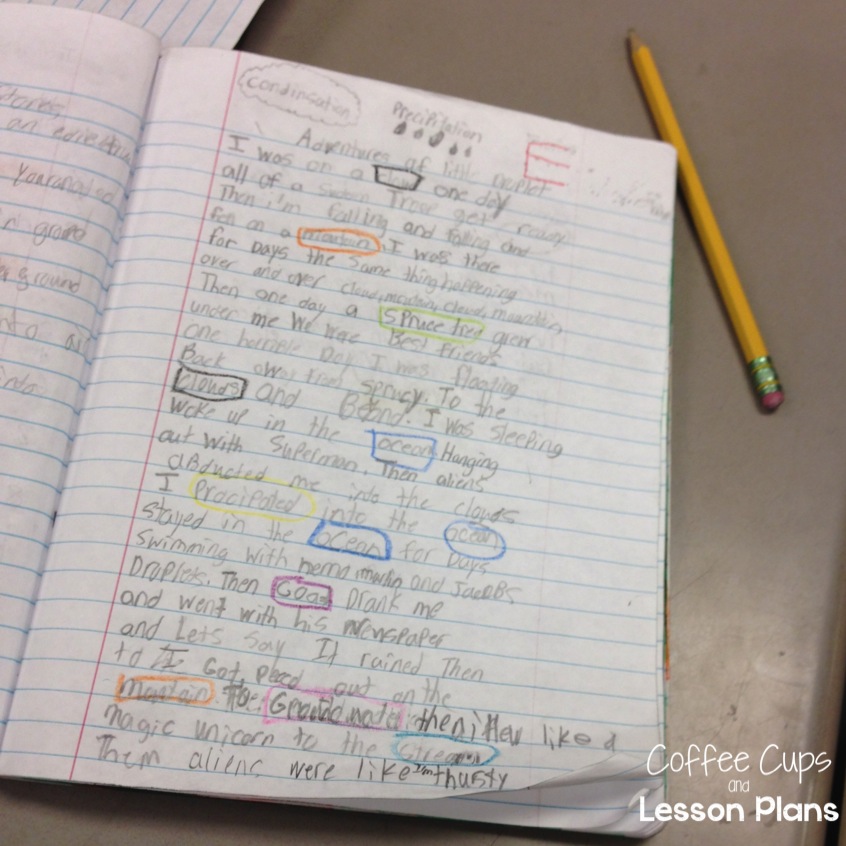 an
ground
ground
into
Condinsation
Precipitation
Adventures of little Droplet
I was on a one day
all of a Sudden Trose get
Then i'm falling and falling and
fell on a mountain I was there
for Days the same thing happening
over and over cloud, mountain, cloud, mountain,
Then one day a spruce tree grew
under me We were Best Friends
one horrible Day I was floating
Back away from sprucy. To the
Clouds and Beond. I was sleeping
woke up in the ocean Hanging
out with Superman. Then aliens
aBducted me into the clouds
I Precipated into the ocean
stayed in the ocean for Days
swimming with nemo marlin and Jacobs
Droplets. Then Goat Drank me
and went with his newspaper
and Lets Say It rained Then
to I Got peed out on the
mantain. The then i flew like a
magic unicorn to the stream
Them aliens were like I'm thusty
Coffee Cups
and
Lesson Plans